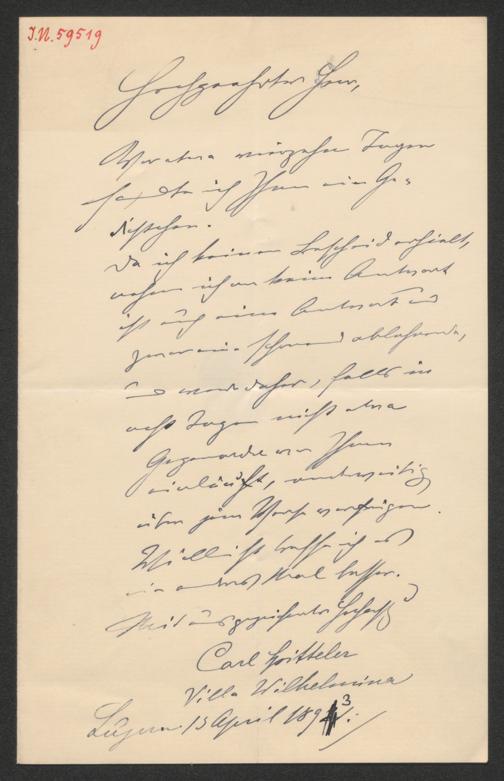 J.N. 59519
Hochgeehrter Herr,
Vor etwa vierzehn Tagen
sandte ich Ihnen ein Ge-
dichtchen.
Da ich keinen Bescheid erhielt,
nehme ich an keine Antwort
ist auch eine Antwort und
zwar eine schweigend ablehnende,
und werde daher, falls in
acht Tagen nicht etwa
Gegenordre von Ihnen
einläuft, anderweitig
über jene Verse verfügen.
Vielleicht treffe ich es
ein anderes Mal besser.
Mit ausgezeichneter Hochachtg
Carl Spitteler
Villa Wilhelmina
Luzern 13 April 1893.